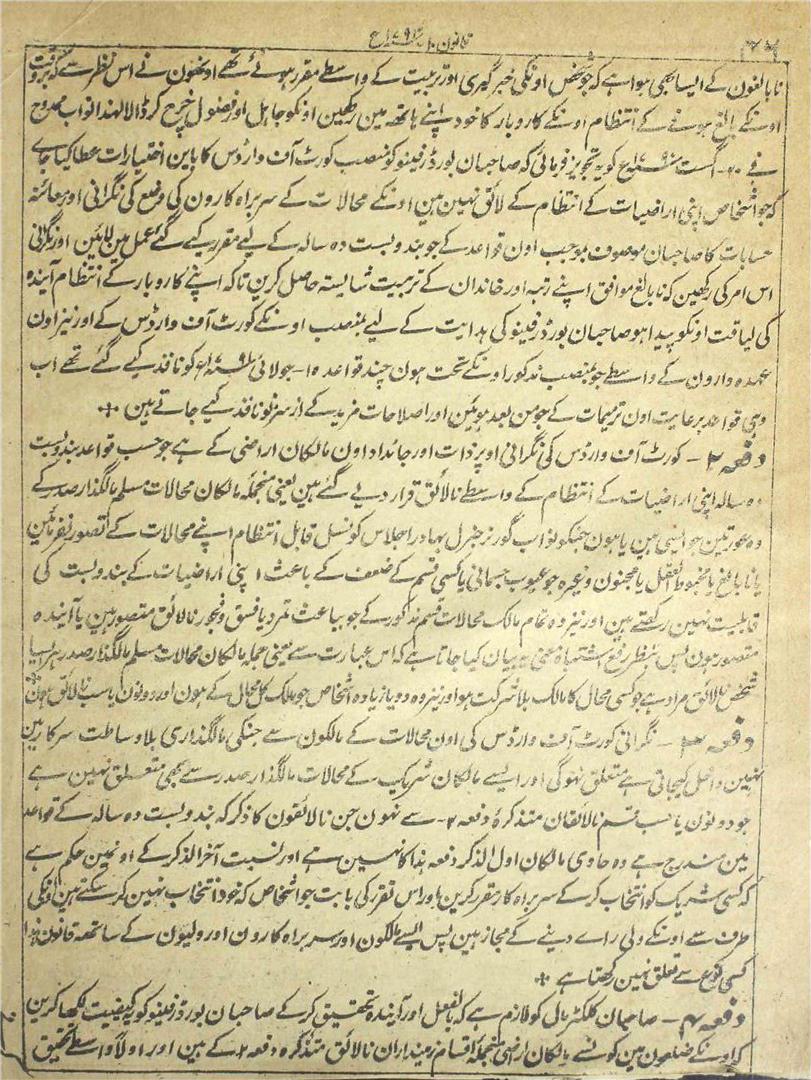 قانون ۱۰ ۱۷۹۳ع
نابالغون کے ایسا بھی ہوا ہے کہ جو شخص اونکی خبرگیری اور تربیت کے واسطے مقرر ہوئے تھے اونھون نے اس نظر سے کہ بروقت
اونکے بالغ ہونے کے انتظام اونکے کاروبار کا خود اپنے ہاتھ مین رکھین اونکو جاہل اور فضول خرچ کر ڈالا لہذا نواب ممدوح
نے ۲۰- اگست کو یہ تجویز فرمائی کہ صاحبان بورڈ رفینیو کو منصب کورٹ آف وارڈس کا باین اختیارات عطا کیا جاے
کہ جو اشخاص اپنی اراضیات کے انتظام کے لائق نہین ہین اونکے محالات کے سربراہ کارون کی وضع کی نگرانی اور معائنہ
حسابات کا صاحبان موصوف بموجب اون قواعد کے جو بندوبست دہ سالہ کے لیے مقرر کیے گئے عمل مین لائین اور نگرانی
اس امر کی رکھین کہ نابالغ موافق اپنے رتبہ اور خاندان کے تربیت شایستہ حاصل کرین تاکہ اپنے کاروبار کے انتظام آیندہ
کی لیاقت اونکو پیدا ہو صاحبان بورڈ رفینیو کی ہدایت کے لیے بمنصب اونکے کورٹ آف وارڈس کے اور نیز اون
عہدہ دارون کے واسطے جو بمنصب مذکور اونکے تحت ہون چند قواعد ۱۵- جولائی کو نافذ کیے گئے تھے اب
وہی قواعد برعایت اون ترمیمات کے جو من بعد ہوئین اور اصلاحات مزید کے از سر نو نافذ کیے جاتے ہین
دفعہ ۲ - کورٹ آف وارڈس کی نگرانی اوپر ذات اور جائداد اون مالکان اراضی کے ہے جو حسب قواعد بندوبست
دہ سالہ اپنی اراضیات کے انتظام کے واسطے نالائق قرار دیے گئے ہین یعنی منجملہ مالکان محالات مسلم مالگذار صدر کے
وہ عورتین جو ایسی ہین یا ہون جنکو نواب گورنر جنرل بہادر اجلاس کونسل قابل انتظام اپنے محالات کے تصور نفرمائین
یا نابالغ یا مخبوط العقل یا مجنون وغیرہ جو عیوب جسمانی یا کسی قسم کے ضعف کے باعث اپنی اراضیات کے بندوبست کی
قابلیت نہین رکھتے ہین اور نیز وہ تمام مالک محالات قسم مذکور کے جو بباعث تمرد یا فسق و فجور نالائق متصور ہین یا آیندہ
متصور ہون پس بنظر رفع اشتباہ معنی یہ بیان کیا جاتا ہے کہ اس عبارت سے یعنی مالکان محالات مسلم مالگذار صدر ہر ایسا
شخص نالائق مراد ہے جو کسی محال کا مالک بلا شرکت ہو اور نیز وہ دو یا زیادہ اشخاص جو مالک کل محال کے ہون اور دونون یا سب نالائق ہون
دفعہ ۳ - نگرانی کورٹ آف وارڈس کی اون محالات کے مالکون سے جنکی مالگذاری بلا وساطت سرکار مین
نہین داخل کیجاتی ہے متعلق نہوگی اور ایسے مالکان شریک کے محالات مالگذار صدر سے بھی متعلق نہین ہے
جو دونون یا سب قسم نالائقان متذکرۂ دفعہ ۲- سے نہون جن نالائقون کا ذکر کہ بندوبست دہ سالہ کے قواعد
مین مندرج ہے وہ حاوی مالکان اول الذکر دفعہ ہذا کا نہین ہے اور نسبت آخر الذکر کے اونہین حکم ہے
کہ کسی شریک کو انتخاب کرکے سربراہ کار مقرر کرین اور اس تقرر کی بابت جو اشخاص کہ خود انتخاب نہین کر سکتے ہین اونکی
طرف سے اونکے ولی راے دینے کے مجاز ہین پس ایسے مالکون اور سربراہ کارون اور ولیون کے ساتھ قانون ہذا
کسی نوع سے تعلق نہین رکھتا ہے
دفعہ ۴ - صاحبان کلکٹر مال کو لازم ہے کہ بالفعل اور آیندہ تحقیق کرکے صاحبان بورڈ رفینیو کو یہ کیفیت لکھا کرین
کہ اونکے ضلعون مین کونسے مالکان اراضی منجملہ اقسام زمینداران نالائق متذکرہ دفعہ ۲ کے ہین اور اولاً واسطے تحقیق